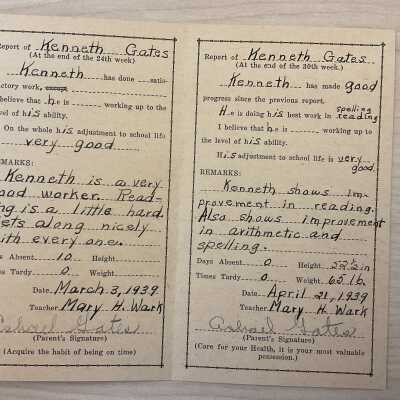 Report of Kenneth Gates
(At the end of the 24th week)
Kenneth has done satis-
ctory work, except
elieve that he is working up to the
vel of his ability.
On the whole his adjustment to school life
very good
REMARKS:
Kenneth is a very
ood worker. Read-
ng is a little hard.
ets along nicely
ith every one.
Days Absent 10 Height
Times Tardy 0 Weight
Date March 3, 1939
Teacher Mary H. Wark
Gates
(Parent's Signature)
(Acquire the habit of being on time)
Report of Kenneth Gates
(At the end of the 30th week.)
Kenneth has made good
progress since the previous report.
He is doing his best work in spelling
reading
I believe that he is working up to
the level of his ability.
His adjustment to school life is very
good.
REMARKS:
Kenneth shows im-
provement in reading.
Also shows improvement
in arithmetic and
spelling.
Days Absent 0 Height 52½ in
Times Tardy 0 Weight 65 lb.
Date April 21, 1939
Teacher Mary H. Wark
Gates
(Parent's Signature)
(Care for your Health, it is your most valuable
possession.)